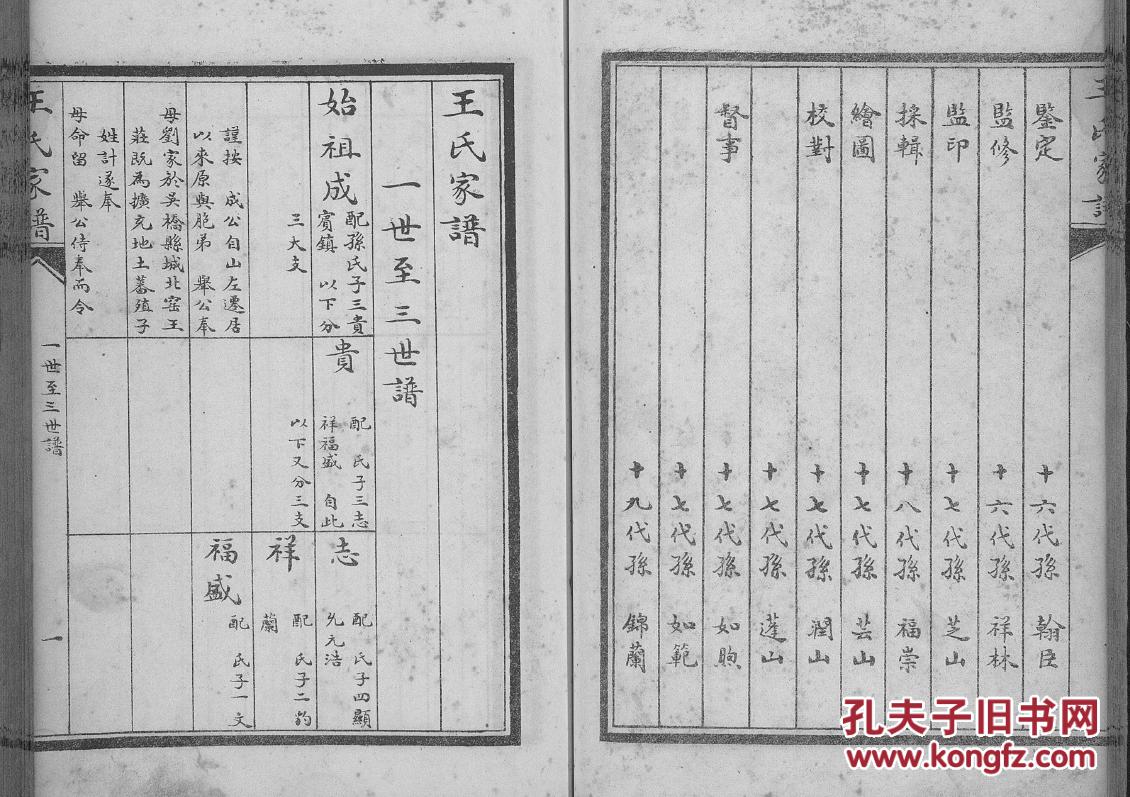 王氏家譜
鑒定 十六代孫 翰臣
監修 十六代孫 祥林
監印 十七代孫 芝山
採輯 十八代孫 福崇
繪圖 十七代孫 芸山
校對 十七代孫 潤山
十七代孫 蓬山
督事 十七代孫 如煦
十七代孫 如範
十九代孫 錦蘭
王氏家譜
一世至三世譜
始祖成
配孫氏子三貴
賓鎮 以下分
三大支
謹按 成公自山左遷居
以來原與胞弟 舉公奉
母劉家於吳橋縣城北窑王
莊既為擴充地土蕃殖子
姓計遂奉
母命留 舉公侍奉而令
貴
配 氏子三志
祥福盛 自此
以下又分三支
志
配 氏子四顯
允元浩
祥
配 氏子二豹
蘭
福盛
配 氏子一文
王氏家譜
一世至三世譜
一
孔夫子旧书网
www.kongfz.com